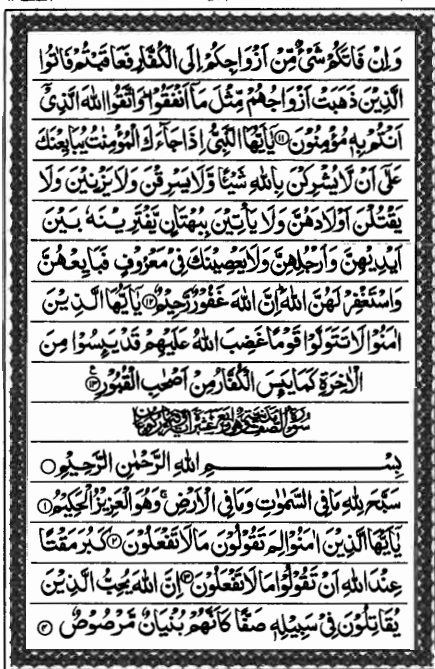 وَاِنْ فَاتَكُمْ شَيْءٌ مِّنْ اَزْوَاجِكُمْ اِلَى الْكُفَّارِ فَعَاقَبْتُمْ فَاٰتُوا
الَّذِيْنَ ذَهَبَتْ اَزْوَاجُهُمْ مِّثْلَ مَاۤ اَنْفَقُوْا ؕ وَاتَّقُوا اللّٰهَ الَّذِيْۤ
اَنْتُمْ بِهٖ مُؤْمِنُوْنَ ۝۱۱ يٰۤاَيُّهَا النَّبِيُّ اِذَا جَآءَكَ الْمُؤْمِنٰتُ يُبَايِعْنَكَ
عَلٰۤى اَنْ لَّا يُشْرِكْنَ بِاللّٰهِ شَيْـًٔا وَّلَا يَسْرِقْنَ وَلَا يَزْنِيْنَ وَلَا
يَقْتُلْنَ اَوْلَادَهُنَّ وَلَا يَاْتِيْنَ بِبُهْتَانٍ يَّفْتَرِيْنَهٗ بَيْنَ
اَيْدِيْهِنَّ وَاَرْجُلِهِنَّ وَلَا يَعْصِيْنَكَ فِيْ مَعْرُوْفٍ فَبَايِعْهُنَّ
وَاسْتَغْفِرْ لَهُنَّ اللّٰهَ ؕ اِنَّ اللّٰهَ غَفُوْرٌ رَّحِيْمٌ ۝۱۲ يٰۤاَيُّهَا الَّذِيْنَ
اٰمَنُوْا لَا تَتَوَلَّوْا قَوْمًا غَضِبَ اللّٰهُ عَلَيْهِمْ قَدْ يَىِٕسُوْا مِنَ
الْاٰخِرَةِ كَمَا يَىِٕسَ الْكُفَّارُ مِنْ اَصْحٰبِ الْقُبُوْرِ ۝۱۳
بِسْمِ اللّٰهِ الرَّحْمٰنِ الرَّحِيْمِ ۝
سَبَّحَ لِلّٰهِ مَا فِي السَّمٰوٰتِ وَمَا فِي الْاَرْضِ ۚ وَهُوَ الْعَزِيْزُ الْحَكِيْمُ ۝۱
يٰۤاَيُّهَا الَّذِيْنَ اٰمَنُوْا لِمَ تَقُوْلُوْنَ مَا لَا تَفْعَلُوْنَ ۝۲ كَبُرَ مَقْتًا
عِنْدَ اللّٰهِ اَنْ تَقُوْلُوْا مَا لَا تَفْعَلُوْنَ ۝۳ اِنَّ اللّٰهَ يُحِبُّ الَّذِيْنَ
يُقَاتِلُوْنَ فِيْ سَبِيْلِهٖ صَفًّا كَاَنَّهُمْ بُنْيَانٌ مَّرْصُوْصٌ ۝۴